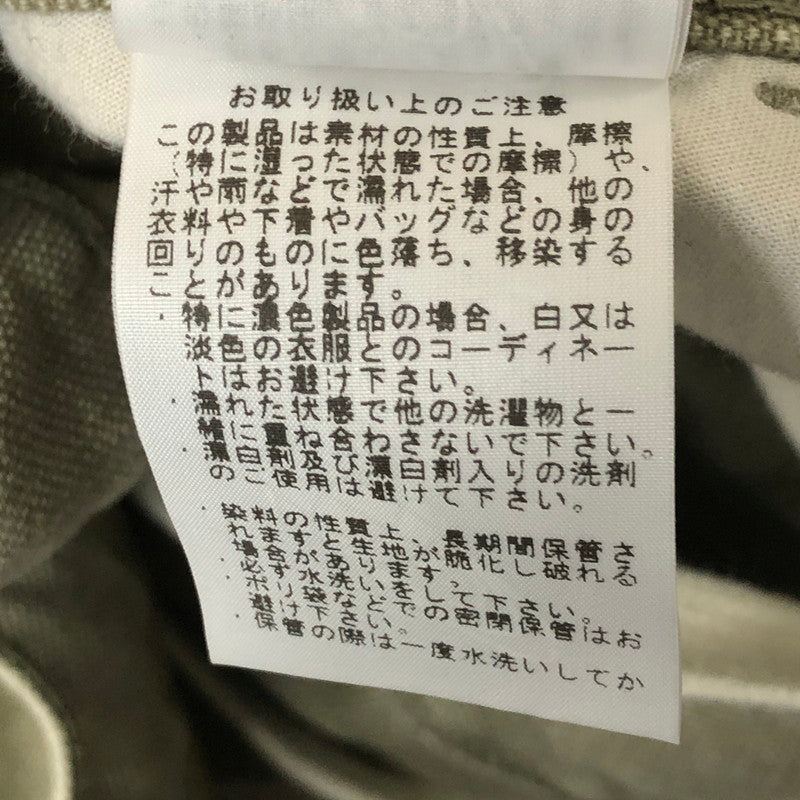 お取り扱い上のご注意
この製品は素材の性質上、摩擦
(特に湿った状態での摩擦)や、
汗や雨などで濡れた場合、他の
衣料や下着やバッグなどの身の
回りのものに色落ち、移染する
ことがあります。
・特に濃色製品の場合、白又は
淡色の衣服とのコーディネー
トはお避け下さい。
・濡れた状態で他の洗濯物と一
緒に重ね合わさないで下さい。
・漂白剤及び漂白剤入りの洗剤
のご使用は避けて下さい。
・染料の性質上、長期間保管さ
れますと生地が脆化し破れる
場合があります。
必ず水洗いをして下さい。
・ポリ袋などでの密閉保管はお
避け下さい。
・保管の際は一度水洗いしてか